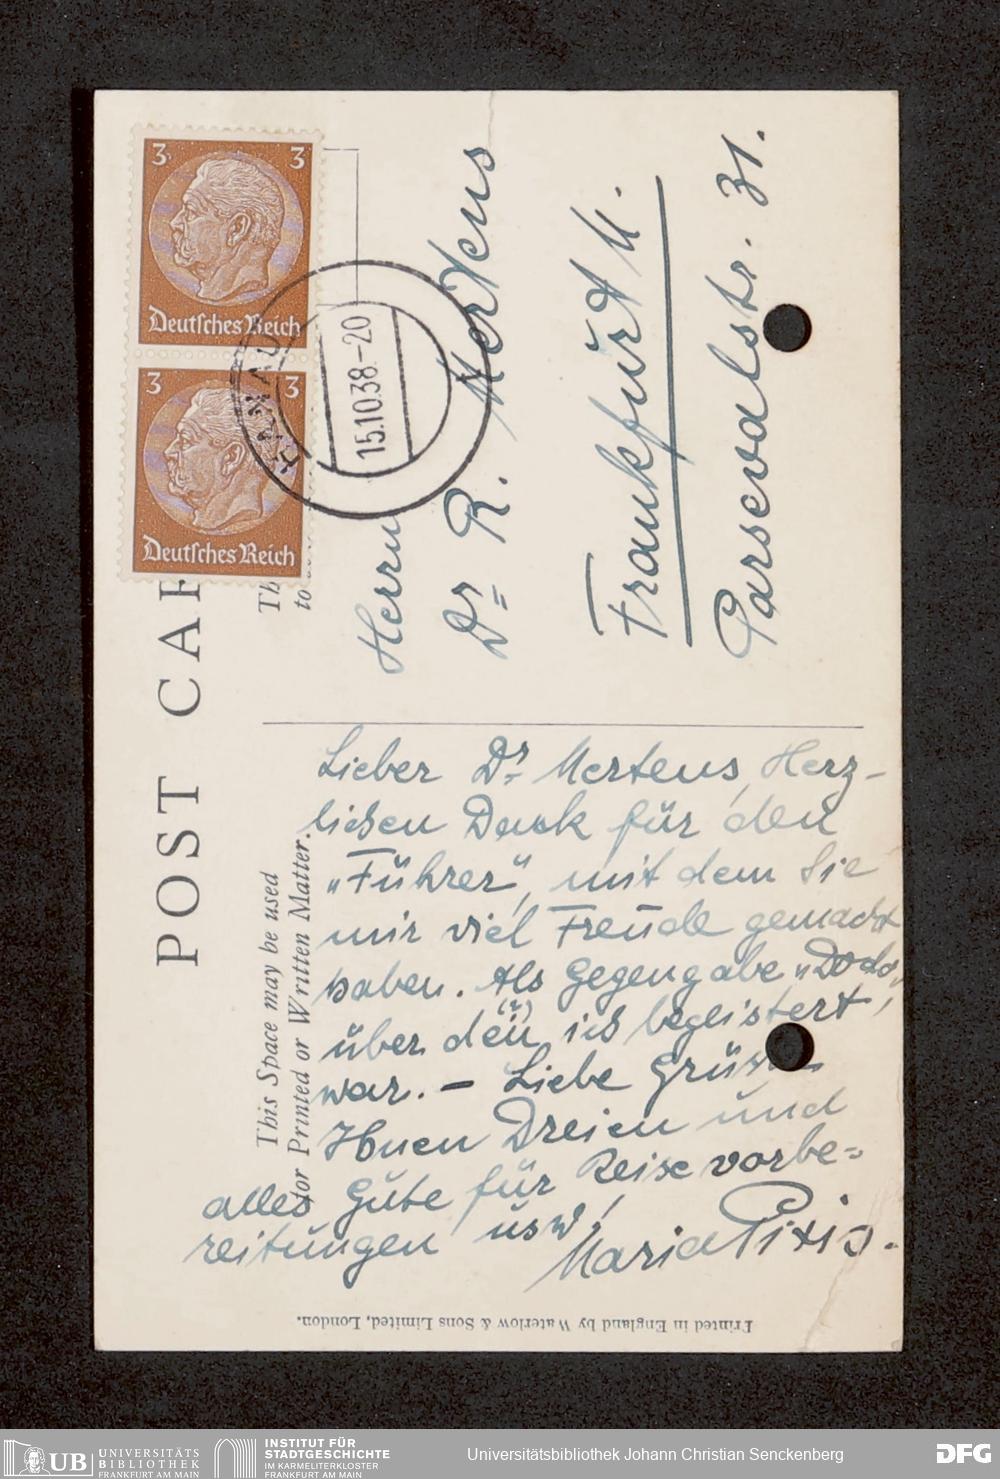 POST CAR
This Space may be used
for Printed or Written Matter.
Th
to
3 3
Deutsches Reich
3 3
Deutsches Reich
HANAU
15.10.38.-20
Herrn
Dr R. Mertens
Frankfurt M.
Parsevalstr. 31.
Lieber Dr Mertens, Herz-
lichen Dank für den
„Führer“, mit dem Sie
mir viel Freude gemacht
haben. Als Gegengabe „Dodo“,
über den (r) ich begeistert
war. – Liebe Grüsse
Ihnen Dreien und
alles Gute für Reisevorbe-
reitungen usw!
Maria Pixis.
Printed in England by Waterlow & Sons Limited, London.
UB UNIVERSITÄTS
BIBLIOTHEK
FRANKFURT AM MAIN
INSTITUT FÜR
STADTGESCHICHTE
IM KARMELITERKLOSTER
FRANKFURT AM MAIN
Universitätsbibliothek Johann Christian Senckenberg
DFG